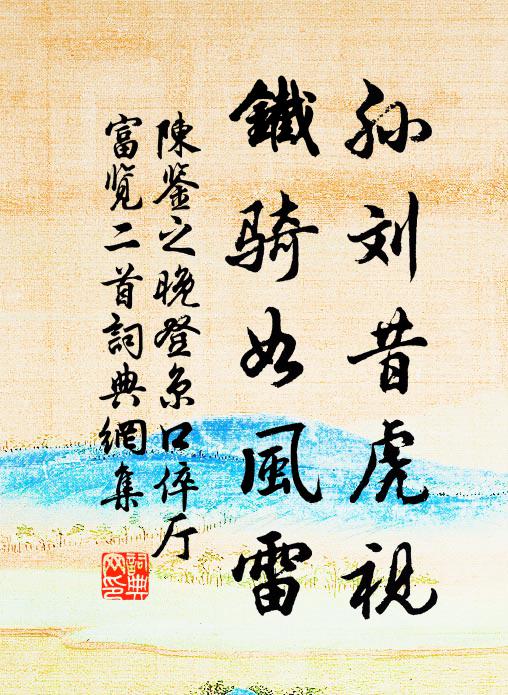 孙刘昔虎视
鐵骑如風雷
陳鉴之晚登京口倅厅
富览二首詞典網集
詞典